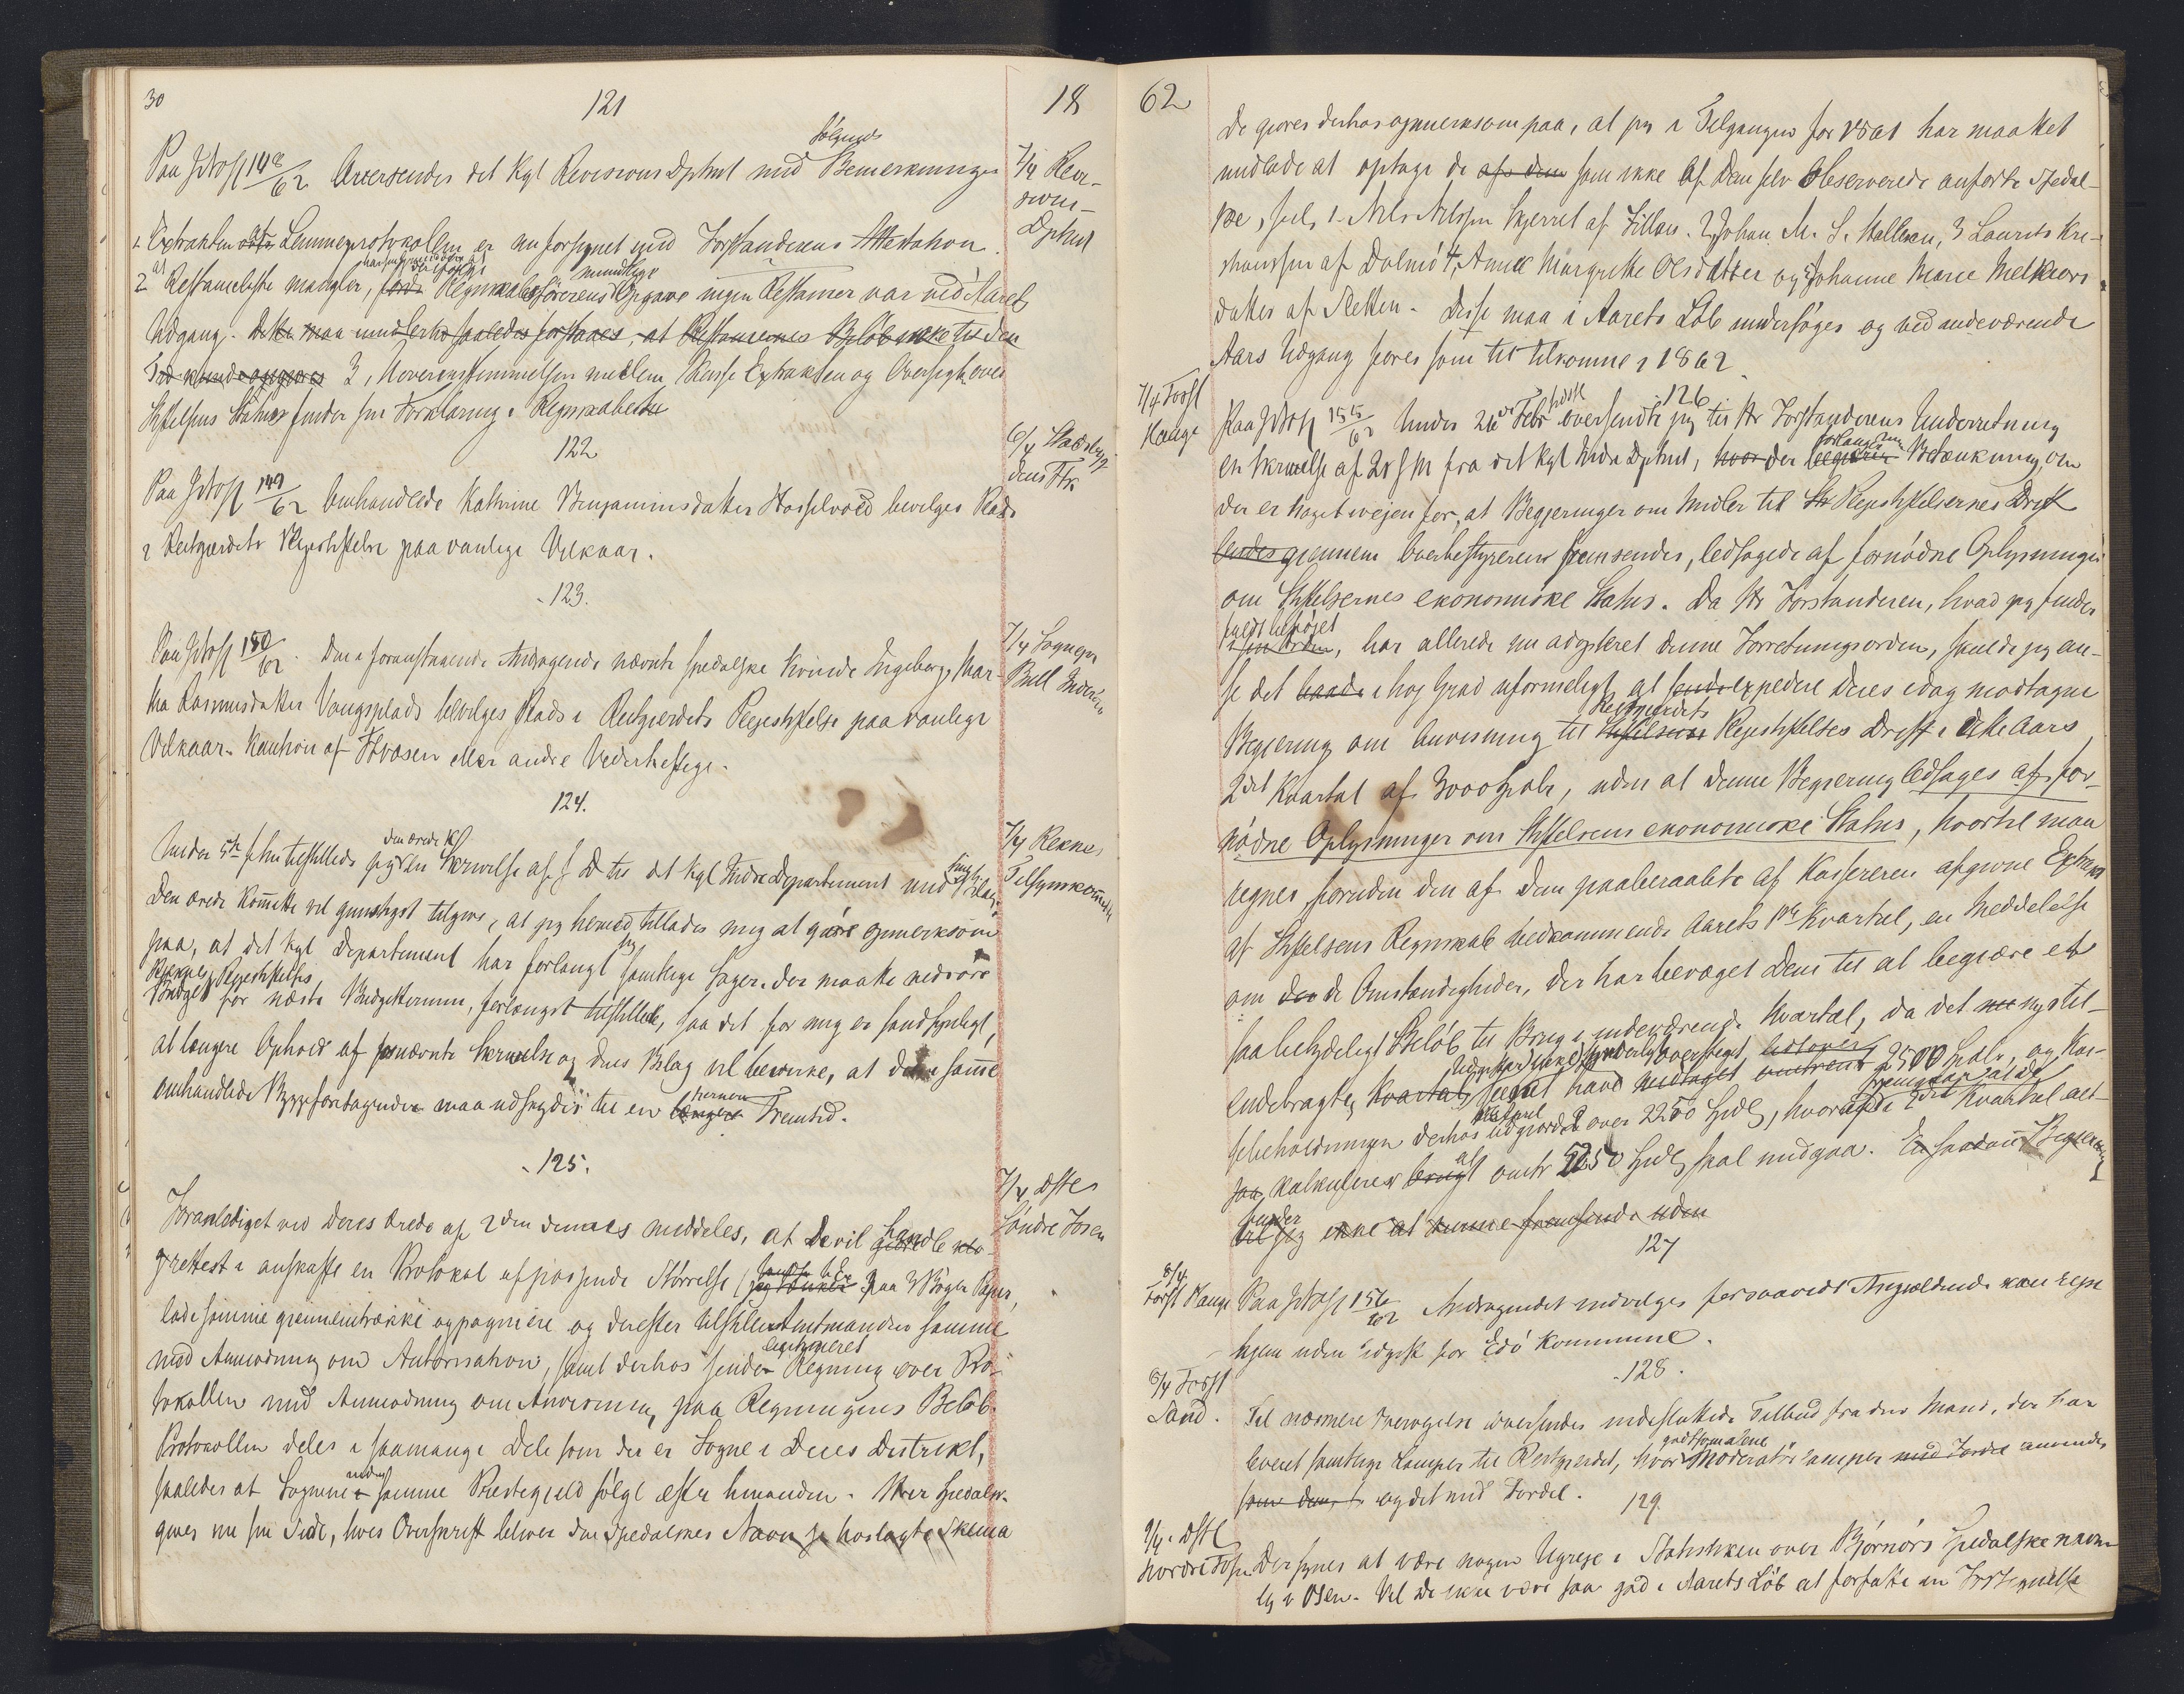 30
121
18
følgende
Paa JNo 148/62 Oversendes det Kgl Revisions Dptmt med Bemerkninger
7/4 Revi-
sions-
Dptmt
1. Extrakten af Lemmeprotokollen er nu forsynet med Forstanderens Attestation.
2 at Restanceliste mangler, Regnskabsførerens mundtlige Opgave ingen Restancer var ved Aarets
Udgang. Dette maa imidlertid saaledes forstaaes, at Restancernes Beløb ikke til den
Tid kunde opgjøres 3, Uoverensstemmelsen mellem Kasse Extrakten og Oversigt over
Stiftelsens Status finder sin Forklaring i Regnskabet
122
Paa JNo 149/62 Omhandlede Kathrine Benjaminsdatter Hasselvold bevilges Plads
i Reitgjerdets Plejestiftelse paa vanlige Vilkaar.
6/4 Stadsbyg-
dens Fk
123.
Paa JNo 150/62. Den i foranstaaende Andragende nævnte spedalske Kvinde Ingeborg Mar-
tha Rasmusdatter Vangsplads bevilges Plads i Reitgjerdets Plejestiftelse paa vanlige
Vilkaar. Kaution af eller andre Vederheftige.
7/4 Sognepr
Bull Inderøen
124.
den ærede K
Under 5te f M tilstillede jeg en Skrivelse af s D til det Kgl Indre Departement med Bilag.
Den ærede Komitte vil gunstigst tilgive, at jeg herved tillader mig at gjøre opmerksom
paa, at det Kgl Departement har forlangt samtlige Sager, der maatte vedrøre
Reknes Plejestiftelses
Budget for næste Budgettermin, forlængst tilstillede, saa det for mig er sandsynligt,
at længere Ophold af nævnte Skrivelse og dens Bilag vil bevirke, at de samme
omhandlede Byggeforetagender maa udskydes til en fjernere Fremtid.
7/4 Reknes
Tilsynskomitte
125.
Foranlediget ved Deres ærede af 2den dennes meddeles, at De vil handle
rettest i anskaffe en Protokol af passende Størrelse ( paa 3 Bøger Papir,
lade samme gjennemtrække og paginere og derefter tilstille Amtmanden samme
med Anmodning om Autorisation, samt derhos sender legitimeret Regning over Pro-
tokollen med Anmodning om Anvisning paa Regningens Beløb.
Protokollen deles i saamange Dele som der er Sogne i Deres Distrikt,
saaledes at Sognene i samme Prestegjeld følge efter hinanden. Hver Spedalsk
gives nu sin Side, hvis Overskrift bliver den Spedalskes Navn hoslagte Skema
7/4 Dstl
Søndre Fosen
62
De gjøres derhos opmerksom paa, at jeg i Tilgangen for 1861 har maattet
undlade at optage de af dem som ikke af Dem selv observerede anførte Spedal-
ske, 1. Nils Nilssen Skjerret af Hillas. 2 Johan M. S. Malleran, 3 Laurits Kri-
stiansen af Dolmø 4, Anne Margrethe Olsdatter og 5 Johanne Marie Melkiors
datter af Sletten. Disse maa i Aarets Løb undersøges og ved indeværende
Aars Udgang føres som til tilkomne i 1862.
126
7/4 Forst
Kauge
Paa JNo 155/62 Under 26de Febr sidstl oversendte jeg til Hr Forstanderens Underretning
en Skrivelse af 20 s M fra det Kgl Indre Dptmt, hvor der forlanges min Betænkning, om
der er noget ivejen for, at Begjeringer om Midler til Plejestiftelsernes Drift
sendes gjennem Overbestyreren fremsendes, ledsagede af fornødne Oplysninger
om Stiftelsernes ekonomiske Status. Da Hr Forstanderen, hvad jeg finder
fuldt beføjet
i sin Orden, har allerede nu adopteret denne Forretningsorden, skulde jeg an-
se det baade i høj Grad uformeligt at expedere Deres idag modtagne
Begjering om Anvisning til Reitgjerdets Plejestiftelses Drift i dette Aars
2det Kvartal af 3000 Spdlr, uden at denne Begjering ledsages af for-
nødne Oplysninger om Stiftelsens ekonomiske Status, hvortil man
regner foruden den af Dem paaberaabte af Kassereren afgivne Extrakt
af Stiftelsens Regnskab vedkommende Aarets 1ste Kvartal, en Meddelelse
om de Omstændigheder, der har bevæget Dem til at begjære et
saa betydeligt Beløb til Brug i indeværende Kvartal, da det nystil-
endebragte Kvartal 2500 Spdlr, og Kas-
sebeholdningen derhos udgjorde over 2250 Spdl, hvoraf i 2det Kvartal alt-
saa kalkuleres omtr 5250 Spdl skal medgaa. En saadan Begjering
finder
vil jeg ikke at kunne fremsende uden
127
8/4
Forst Kauge
Paa JNo 156/62 Andragendet indvilges forsaavidt Angjældende kan rejse
hjem uden Udgift for Edø Kommune.
128.
8/4 Forst
Sand.
Til nærmere Overvejelse oversendes indesluttede Tilbud fra den Mand, der har
leveret samtlige Lamper til Reitgjerdet, hvor Moderatørlamper med Fordel anvendes
og det med Fordel.
129.
9/4 Dstl
Nordre Fosen
Der synes at være nogen Ugreje i Statistiken over Bjørnørs Spedalske navn-
lig i Osen. Vil De ikke være saa god i Aarets Løb at forfatte en Fortegnelse